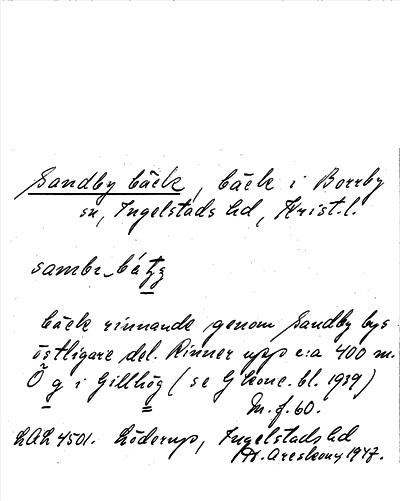 Sandby bäck, bäck i Borrby
sn, Ingelstads hd, Krist. l.
bäck rinnande genom Sandby bys
östligare del. Rinner upp c:a 400 m.
Ö g i Gillhög (se Gkonc. bl. 1939)
M. f. 60.
LAL 4501. Löderup, Ingelstads hd
Areskoug 1947.